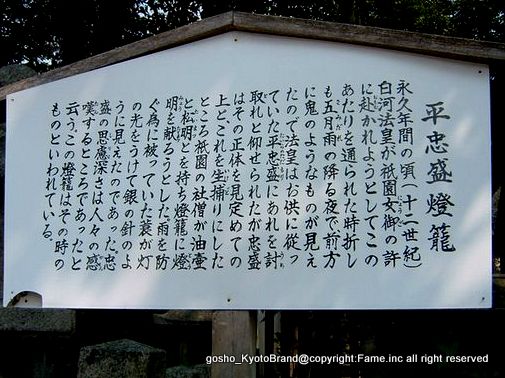 平忠盛燈籠
永久年間の頃(十二世紀)
白河法皇が祇園女御の許
に赴かれようとしてこの
あたりを通られた時折し
も五月雨の降る夜で前方
に鬼のようなものが見え
たので法皇はお供に従っ
ていた平忠盛にあれを討
取れと仰せられたが忠盛
はその正体を見定めての
上とこれを生捕りにした
ところ祇園の社僧が油壷
と松明とを持ち燈籠に燈
明を献ろうとした雨を防
ぐ為に被っていた蓑が灯
の光をうけて銀の針のよ
うに見えたのであった。忠
盛の思慮深さは人々の感
嘆するところであったと
云う。この燈籠はその時の
ものといわれている。
gosho_KyotoBrand@copyright:Fame.inc all right reserved